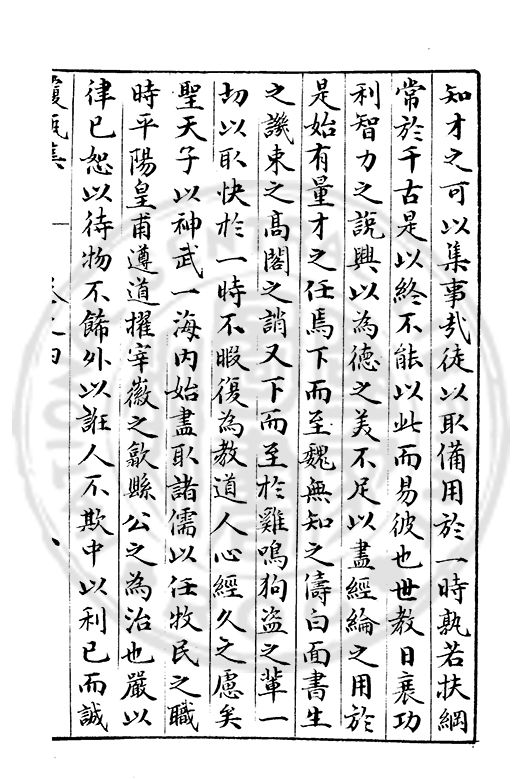 知才之可以集事哉徒以取備用於一時孰若扶綱
常於千古是以終不能以此而易彼也世教日衰功
利智力之說興以為德之美不足以盡經綸之用於
是始有量才之任焉下而至魏無知之儔白面書生
之譏束之高閣之誚又下而至於雞鳴狗盜之輩一
切以取快於一時不暇復為教道人心經久之慮矣
聖天子以神武一海內始盡取諸儒以任牧民之職
時平陽皇甫遵道擢宰薇之歙縣公之為治也嚴以
律已恕以待物不飾外以誑人不欺中以利已而誠
覆瓿集
卷之四